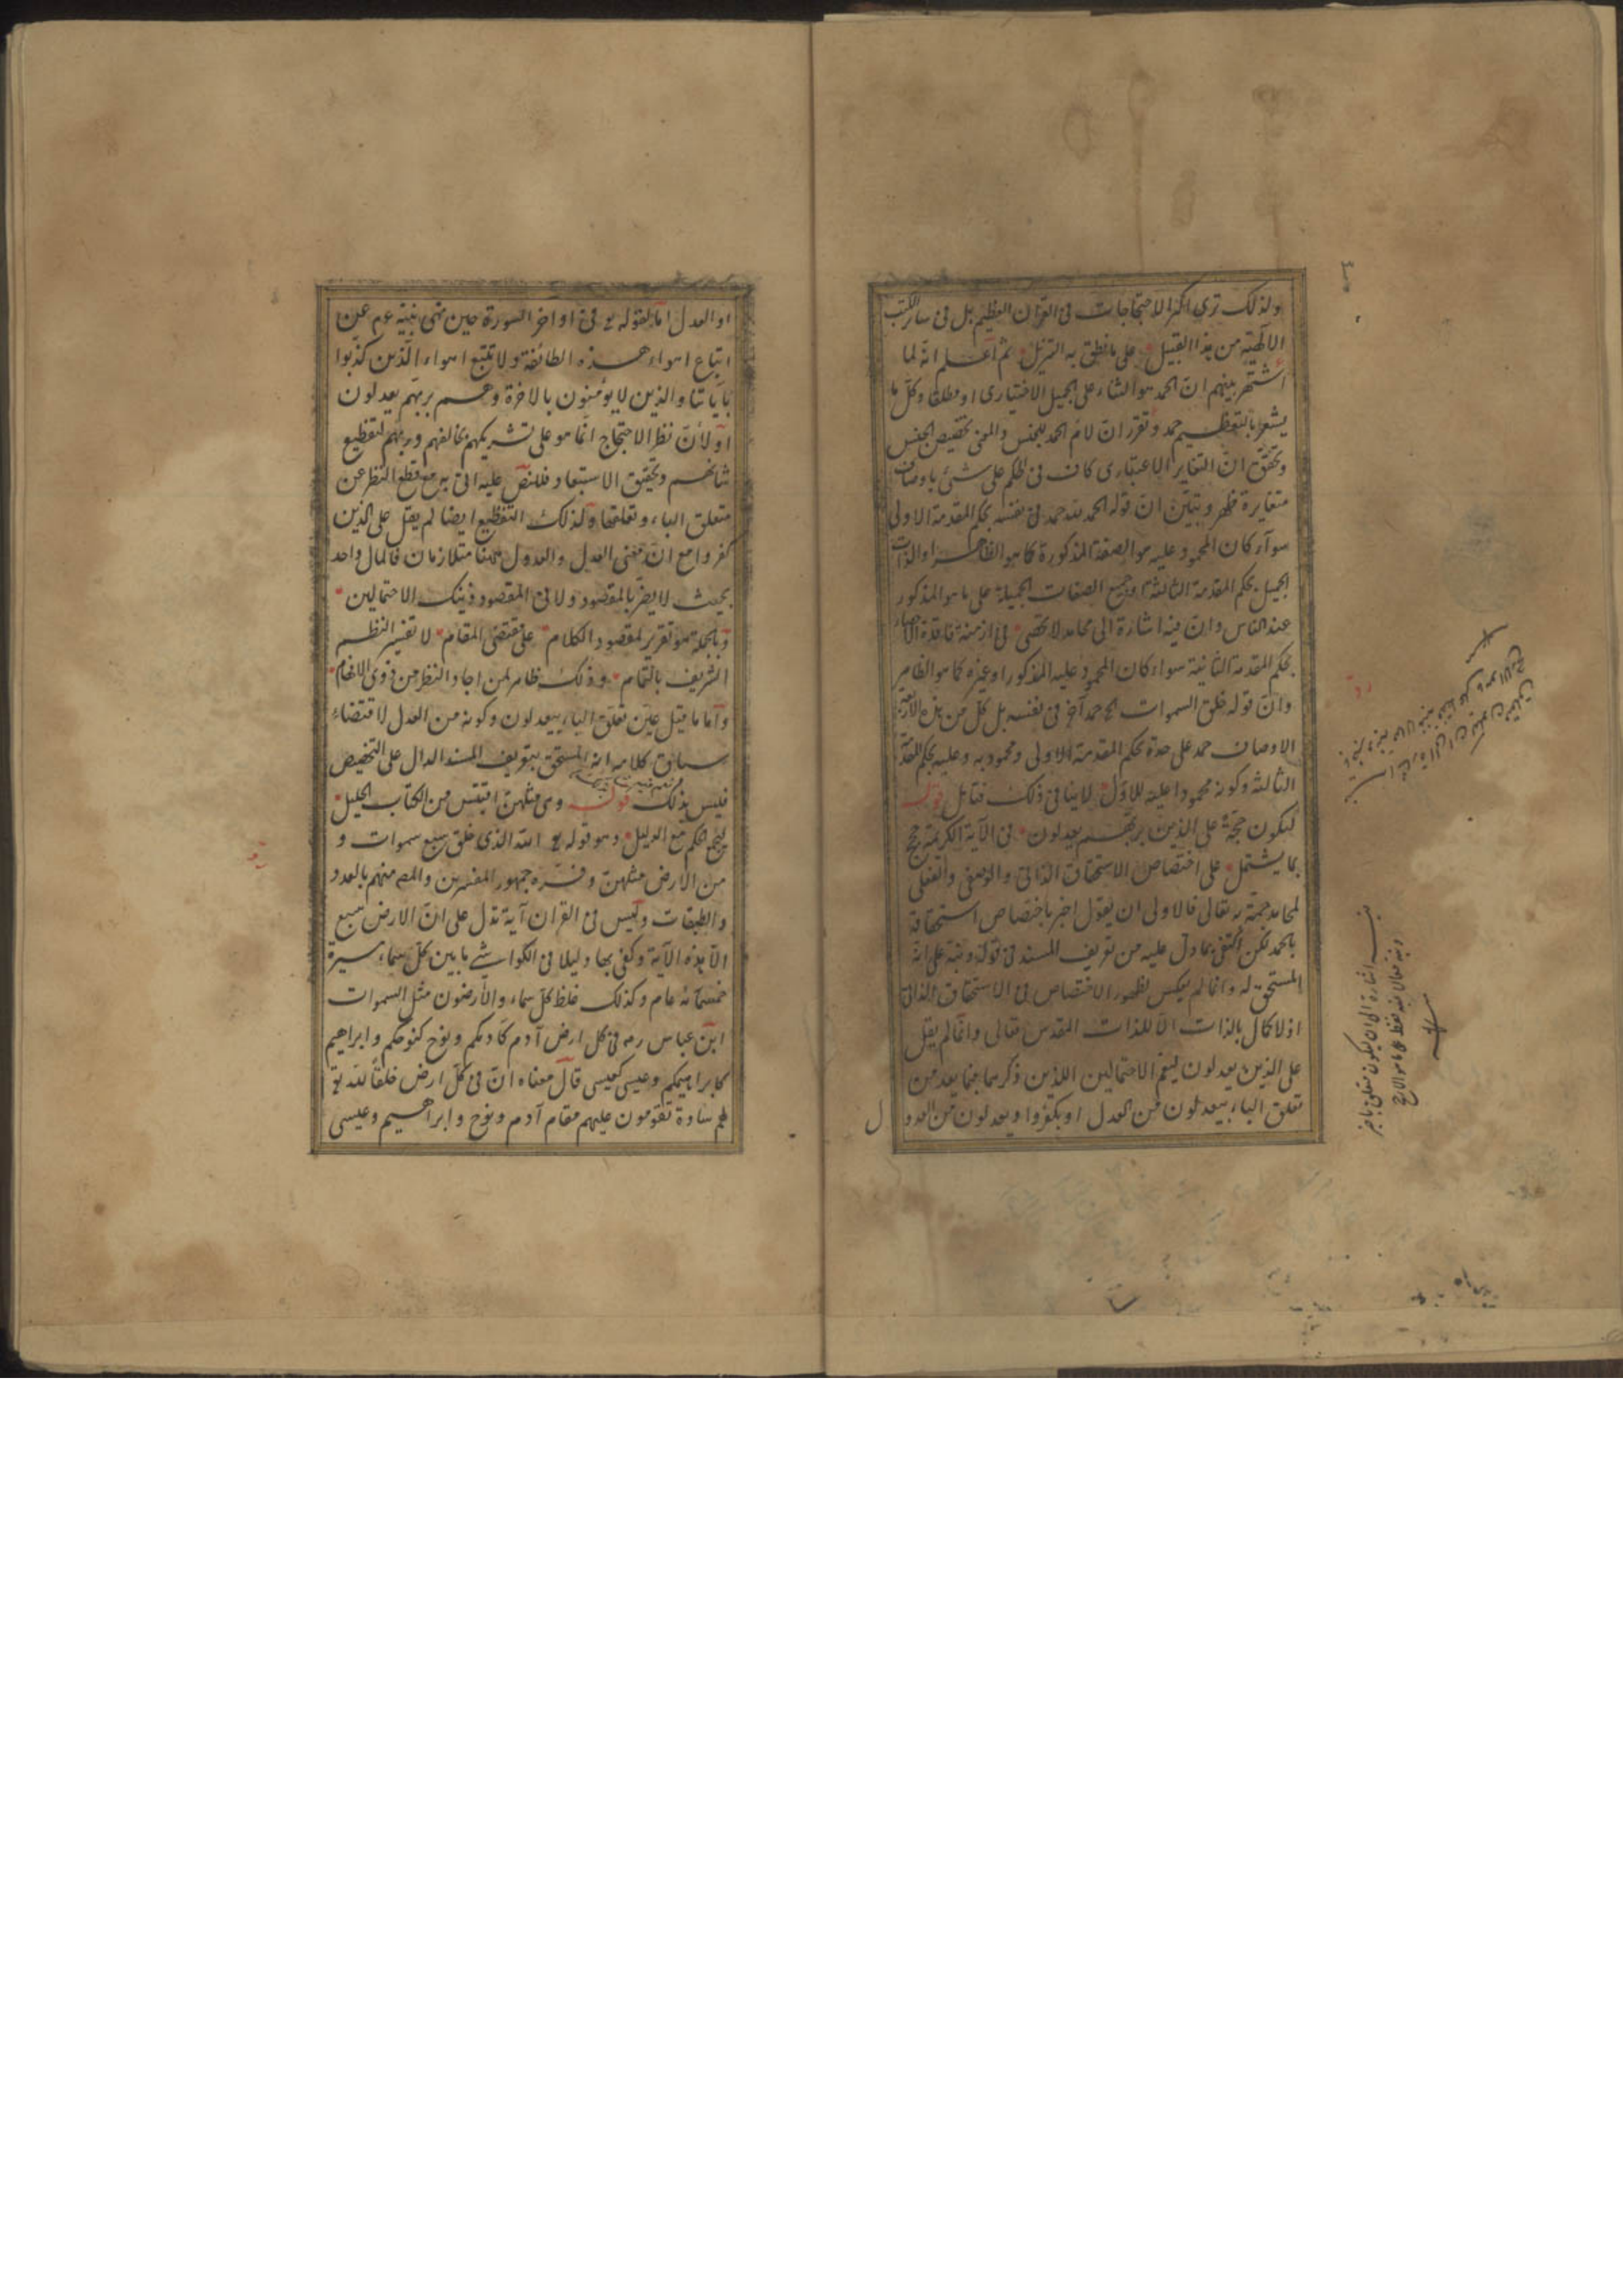 ولذلك ترى اكثر الاحتجاجات فى القرآن العظيم بل فى سائر الكتب
الالهية من هذا القبيل على ما نطق به التنزيل ثم اعلم انه لما
اشتهر بينهم ان الحمد هو الثناء على الجميل الاختيارى او مطلقا وكل ما
يشعر بالتعظيم حمد وتقرر ان لام الحمد للجنس والمعنى تخصيص الجنس
وتحقق ان التغاير الاعتبارى كاف فى الحكم على شئ باوصاف
متغايرة ظهر وتبين ان قوله الحمد لله حمد فى نفسه بحكم المقدمة الاولى
سواء كان المحمود عليه هو الصفة المذكورة كما هو الظاهر او الذات
الجميل بحكم المقدمة الثالثة او جميع الصفات الجميلة على ما هو المذكور
عند الناس وان فيه اشارة الى محامد لا تحصى فى ازمنة
بحكم المقدمة الثانية سواء كان المحمود عليه المذكور او غيره كما هو الظاهر
وان قوله خلق السموات الخ حمد آخر فى نفسه بل كل من هذه
الاوصاف حمد على حدة بحكم المقدمة الاولى ومحمود به وعليه بحكم المقدمة
الثالثة وكونه محمودا عليه للاول لا ينافى ذلك فتأمل قوله
ليكون حجة على الذين بربهم يعدلون فى الآية الكريمة حجج
بما يشتمل على اختصاص الاستحقاق الذاتى والوصفى والفعلى
لمحامد جمة به تعالى فالاولى ان يقول اخبر باختصاص استحقاقه
بالحمد لكن اكتفى بما دل عليه من تعريف المسند فى قوله ونبه على انه
المستحق له وانما لم يعكس لظهور الاختصاص فى الاستحقاق الذاتى
اذ لا كمال بالذات الا للذات المقدس تعالى وانما لم يقل
على الذين يعدلون ليعم الاحتمالين اللذين ذكرهما فيما بعد من
تعلق الباء بيعدلون من العدل او بكفروا ويعدلون من العدو
ل
او العدل اما لقوله تع فى اواخر السورة حين نهى نبيه عم عن
اتباع اهواء هذه الطائفة ولا تتبع اهواء الذين كذبوا
بآياتنا والذين لا يؤمنون بالاخرة وهم بربهم يعدلون
او لأن نظر الاحتجاج انما هو على تشريكهم مخالفهم وربهم لتفظيع
شانهم وتحقيق الاستبعاد فلنص عليه اتى به مع قطع النظر عن
متعلق الباء وتعلقها ولذلك التفظيع ايضا لم يقل على الذين
كفروا مع ان معنى العدل والعدول ههنا متلازمان فالمال واحد
بحيث لا يضر بالمقصود ولا فى المقصود ذينك الاحتمالين
وبالجملة هو تقرير لمقصود الكلام على مقتضى المقام لا تفسير النظم
الشريف بالتمام وذلك ظاهر لمن اجاد النظر من ذوى الافهام
واما ما قيل عين تعلق الباء بيعدلون وكونه من العدل لاقتضاء
سياق كلامه انه المستحق بتعريف المسند الدال على التخصيص
فليس بذلك قوله وهى مثلهن اقتبس من الكتاب الجليل
ليجمع الحكم مع الدليل وهو قوله تع الله الذى خلق سبع سموات و
من الارض مثلهن وفسره جمهور المفسرين والمصـ منهم بالعدد
والطبقات وليس فى القران آية تدل على ان الارض سبع
الا هذه الآية وكفى بها دليلا فى الكواشى ما بين كل سماء مسيرة
خمسمائة عام وكذلك غلظ كل سماء والأرضون مثل السموات
ابن عباس رضه فى كل ارض آدم كآدمكم ونوح كنوحكم وابراهيم
كابراهيمكم وعيسى كعيسى قال معناه ان فى كل ارض خلقا لله تع
لهم سادة تقومون عليهم مقام آدم ونوح وابراهيم وعيسى